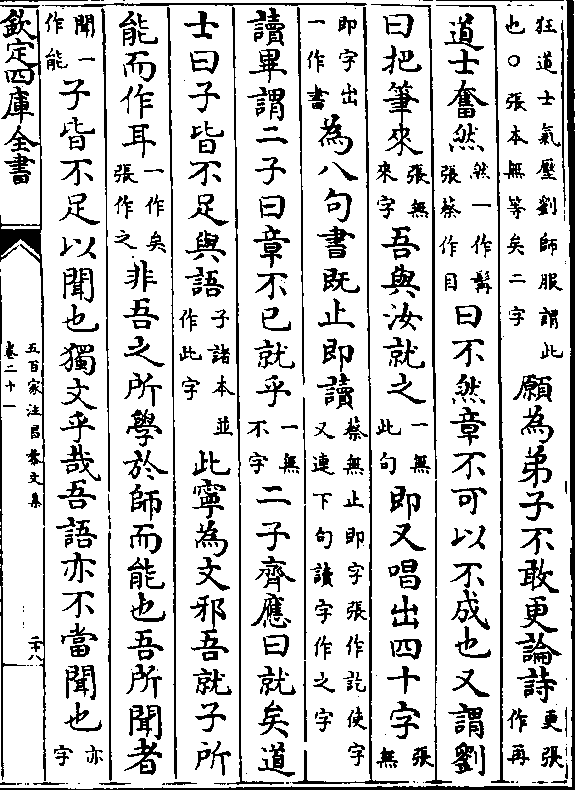 狂道士氣壓劉師服謂此也〇張本無等矣二字願為弟子不敢更論詩更張作再
道士奮然然一作髯張蔡作目曰不然章不可以不成也又謂劉
曰把筆來張無來字吾與汝就之一無此句即又唱出四十字張無
即字出一作書為八句書既止即讀蔡無止即字張作訖使字又連下句讀字作之字
讀畢謂二子曰章不已就乎一無不字二子齊應曰就矣道
士曰子皆不足與語子諸本並作此字此寧為文邪吾就子所
能而作耳一作矣張作之非吾之所學於師而能也吾所聞者
聞一作能子皆不足以聞也獨文乎哉吾語亦不當聞也亦字
欽定四庫全書
五百家注昌黎文集
卷二十一
二十八